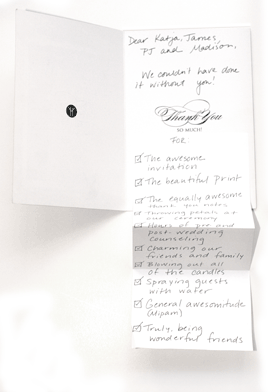 Dear Katja, James,
PJ and Madison,
We couldn't have done
it without you!
Thank You
SO MUCH!
FOR:
The awesome
invitation
The beautiful print
The equally awesome
thank you notes
Throwing petals at
our ceremony
Hours of pre and
post-wedding
counseling
Charming our
friends and family
Blowing out all
of the candles
Spraying guests
with water
General awesomitude
(Mipam)
Truly, being
wonderful friends